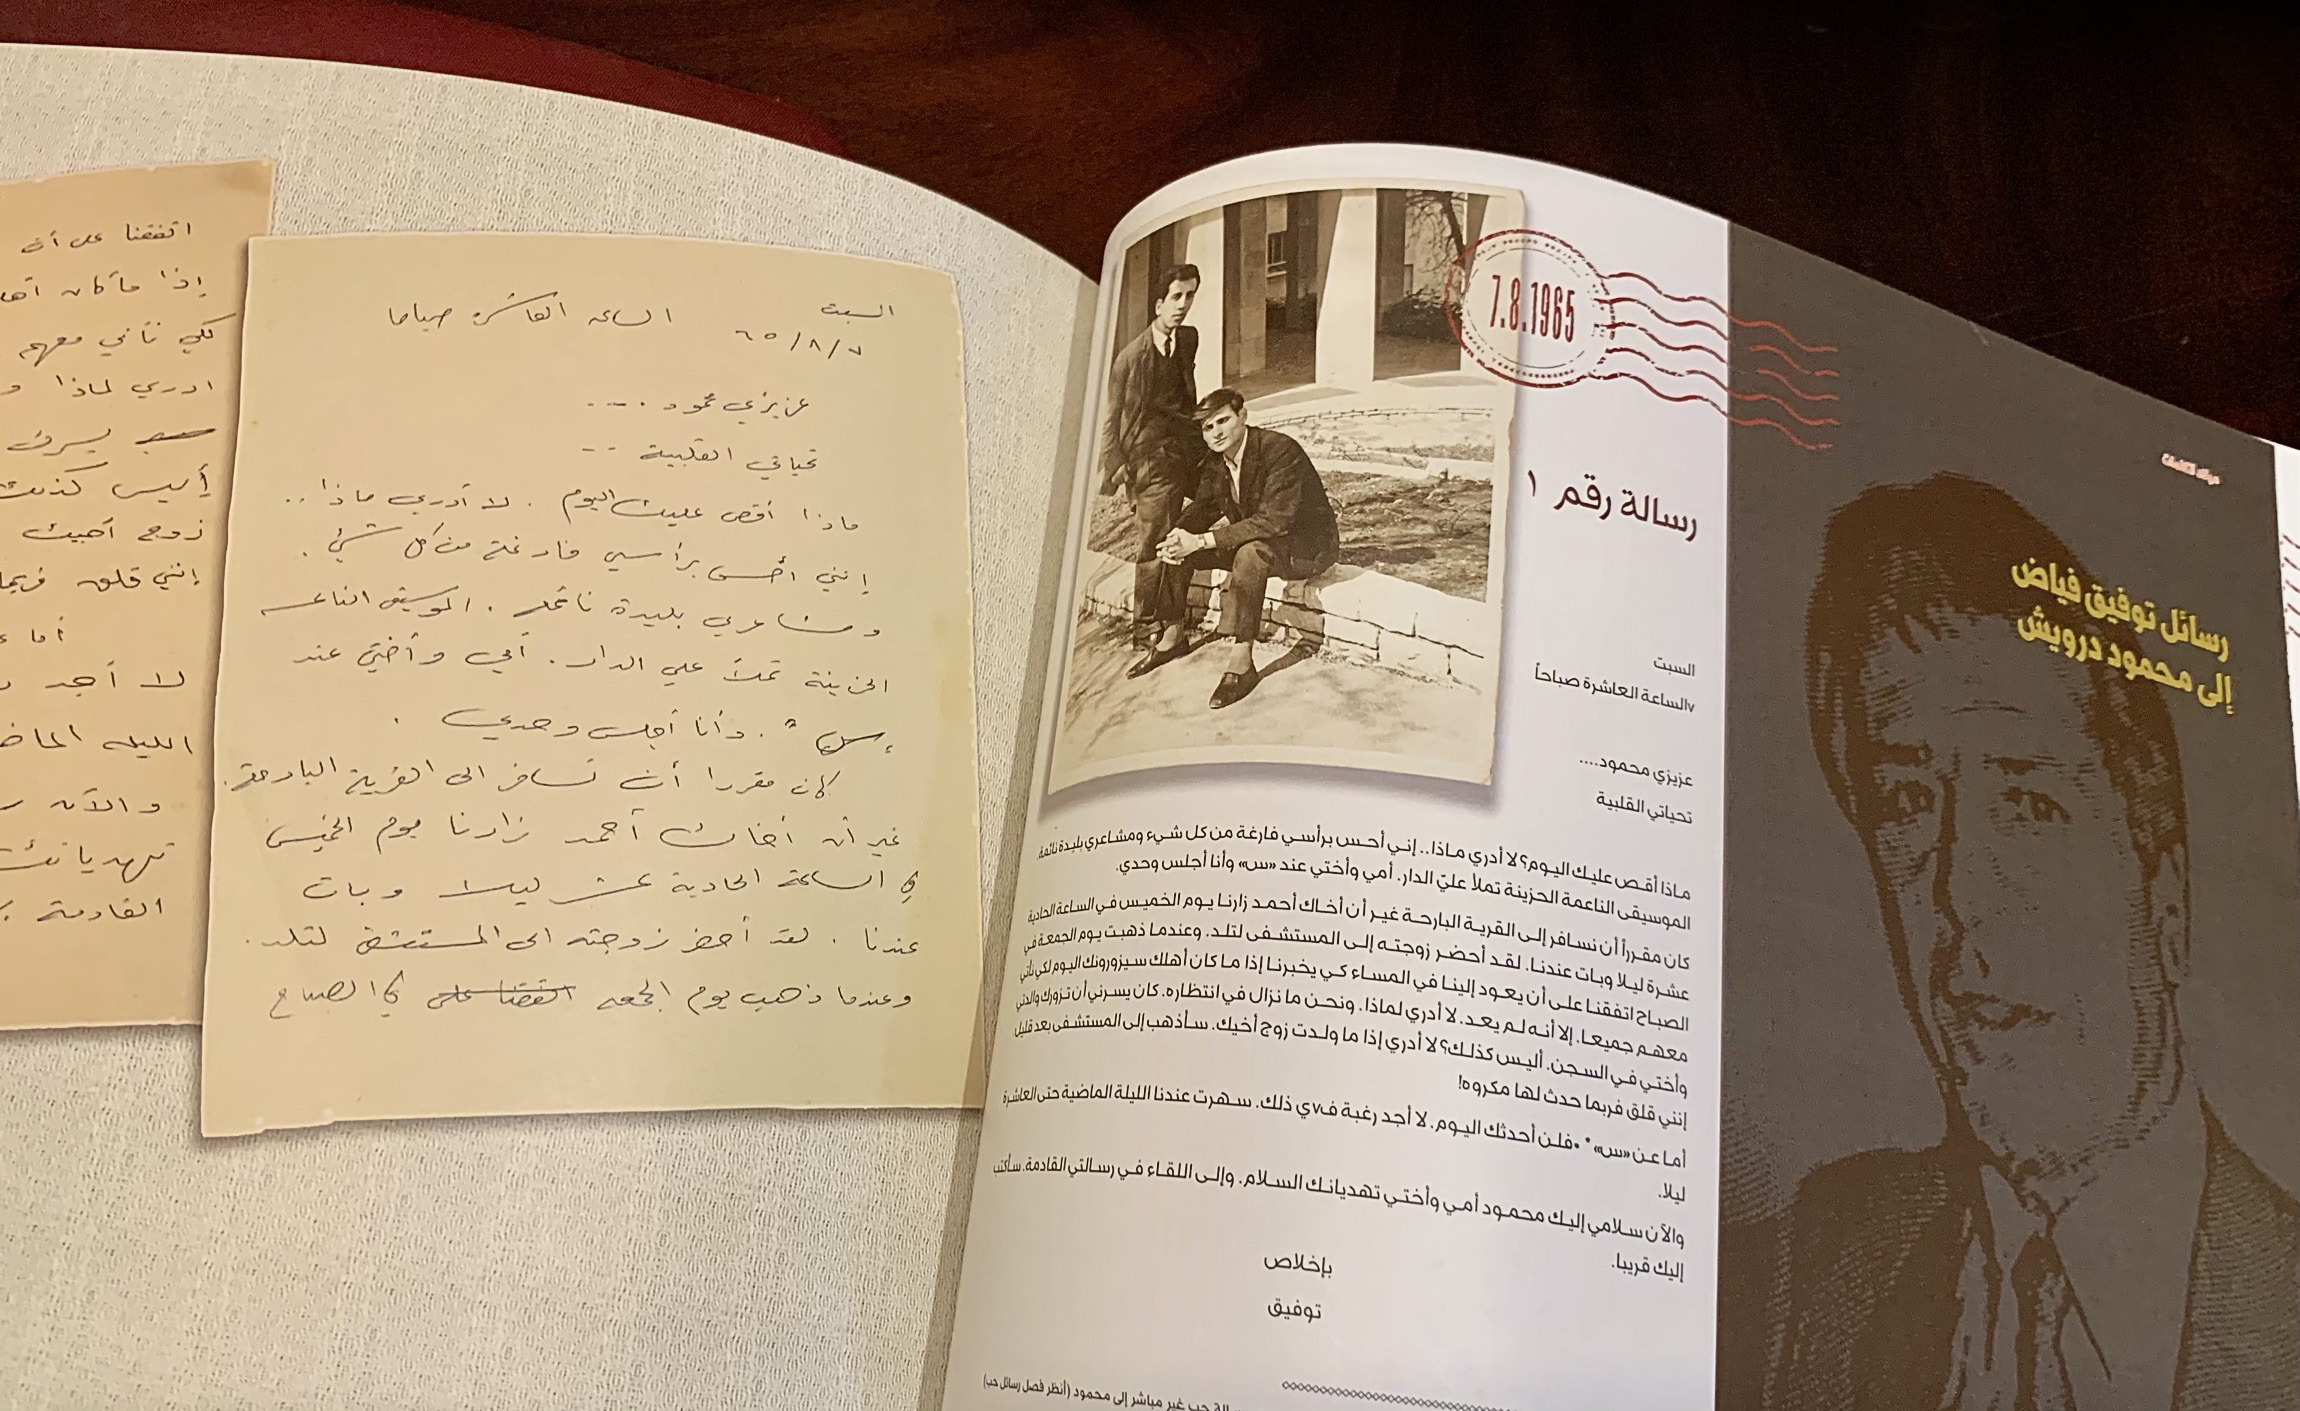 رسائل توفيق فياض
إلى محمود درويش
7.8.1965
رسالة رقم ١
السبت
٧الساعة العاشرة صباحاً
عزيزي محمود....
تحياتي القلبية
ماذا أقص عليك اليوم؟ لا أدري ماذا.. إني أحس برأسي فارغة من كل شيء ومشاعري بليدة نائمة.
الموسيقى الناعمة الحزينة تملأ عليّ الدار. أمي وأختي عند «س» وأنا أجلس وحدي.
كان مقرراً أن نسافر إلى القرية البارحة غير أن أخاك أحمد زارنا يوم الخميس في الساعة الحادية
عشرة ليلا وبات عندنا. لقد أحضر زوجته إلى المستشفى لتلد. وعندما ذهبت يوم الجمعة في
الصباح اتفقنا على أن يعود إلينا في المساء كي يخبرنا إذا ما كان أهلك سيزورونك اليوم لكي نأتي
معهم جميعا. إلا أنه لم يعد. لا أدري لماذا. ونحن ما نزال في انتظاره. كان يسرني أن تزورك والدتي
وأختي في السجن. أليس كذلك؟ لا أدري إذا ما ولدت زوج أخيك. سأذهب إلى المستشفى بعد قليل.
إنني قلق فربما حدث لها مكروه!
أما عن «س»* •فلن أحدثك اليوم. لا أجد رغبة ف٧ي ذلك. سهرت عندنا الليلة الماضية حتى العاشرة
ليلا.
والآن سلامي إليك محمود أمي وأختي تهديانك السلام. وإلى اللقاء في رسالتي القادمة. سأكتب
إليك قريبا.
بإخلاص
توفيق
حب غير مباشر إلى محمود (أنظر فصل رسائل حب)
السبت الساعة العاشرة صباحا
٦٥/٨/٧
عزيزي محمود ....
تحياتي القلبية ..
ماذا أقص عليك اليوم . لا أدري ماذا ..
إنني أحس برأسي فارغة من كل شيء .
ومشاعري بليدة نائمة . الموسيقى الناعمة
الحزينة تملأ علي الدار . أمي وأختي عند
"س" . وأنا أجلس وحدي .
كان مقررا أن نسافر الى القرية البارحة .
غير أن أخاك أحمد زارنا يوم الخميس
في الساعة الحادية عشر ليلا وبات
عندنا . لقد أحضر زوجته الى المستشفى لتلد .
وعندما ذهب يوم الجمعه اتفقنا على في الصباح
اتفقنا على أن
إذا ما كان أهلك
لكي نأتي معهم
ادري لماذا و
يسرني
أليس كذلك
زوج أخيك
إنني قلق فربما
أما
لا أجد
الليلة الماض
والآن
تهديانك
القادمة